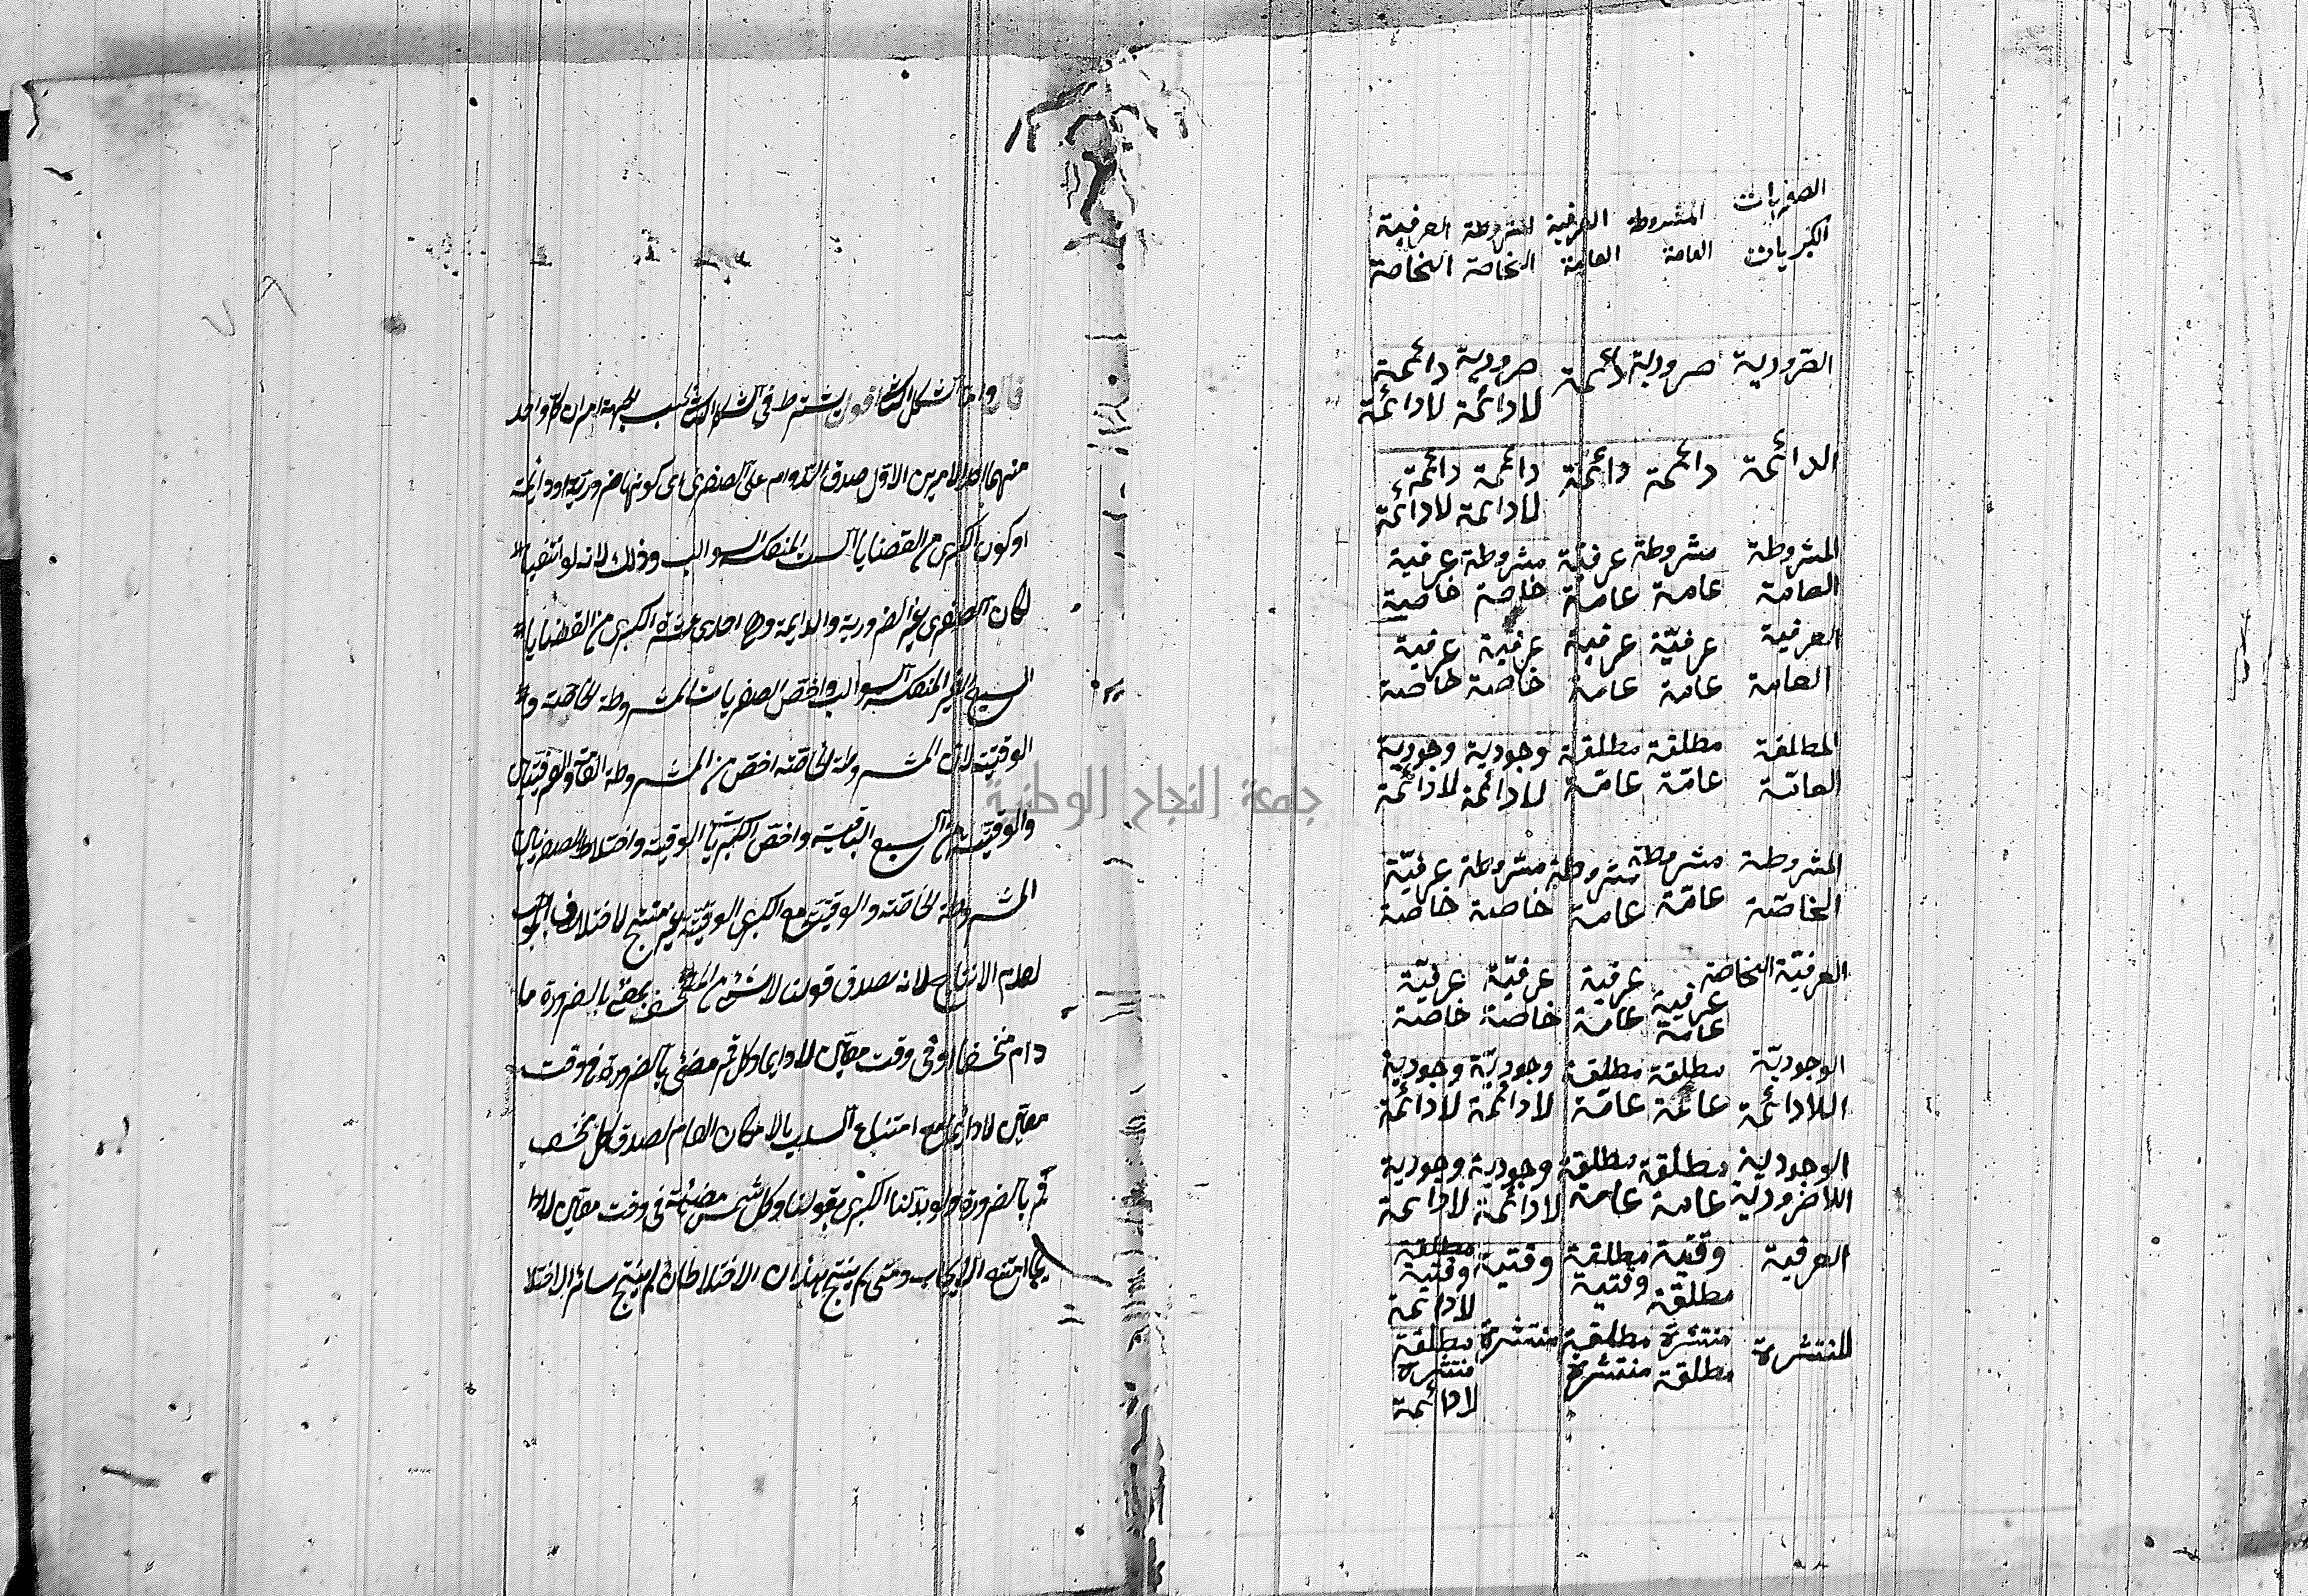 الصغريات المشروطة العرفية المشروطة العرفية
الكبريات العامة العامة الخاصة الخاصة
الضرورية ضرورية دائمة ضرورية دائمة
لادائمة لادائمة
الدائمة دائمة دائمة دائمة دائمة
لادائمة لادائمة
المشروطة مشروطة عرفية مشروطة عرفية
العامة عامة عامة خاصة خاصة
العرفية عرفية عرفية عرفية عرفية
العامة عامة عامة خاصة خاصة
المطلقة مطلقة مطلقة وجودية وجودية
العامة عامة عامة لادائمة لادائمة
المشروطة مشروطة مشروطة مشروطة عرفية
الخاصة عامة عامة خاصة خاصة
العرفية الخاصة عرفية عرفية عرفية عرفية
عامة عامة خاصة خاصة
الوجودية مطلقة مطلقة وجودية وجودية
اللادائمة عامة عامة لادائمة لادائمة
الوجودية مطلقة مطلقة وجودية وجودية
اللاضرورية عامة عامة لادائمة لادائمة
العرفية وقتية مطلقة وقتية مطلقة
مطلقة وقتية وقتية
لادائمة
المنتشرة منتشرة مطلقة منتشرة مطلقة
مطلقة منتشرة منتشرة
لادائمة
قال واما الشكل الثانى اقول يشترط فى الشكل الثانى بحسب الجهة امران كل واحد
منهما احد الامرين الاول صدق الدوام على الصغرى اى كونها ضرورية او دائمة
او كون الكبرى من القضايا الست المنعكسة السوالب وذلك لانه لو انتفيا
لكان الصغرى غير الضرورية والدايمة وهى احدى عشرة والكبرى من القضايا
السبع الغير المنعكسة السوالب واخص الصغريات المشروطة الخاصة و
الوقتية لان المشروطة الخاصة اخص من المشروطة العامة والعرفيتين
والوقتية من السبع الباقية واخص الكبريات الوقتية واختلاط الصغريين
المشروطة الخاصة والوقتية مع الكبرى الوقتية غير منتج لاختلاف الموجب
لعدم الانتاج لانه يصدق قولنا لا شئ من المنخسف بمضئ بالضرورة ما
دام منخسفا او فى وقت معين لادايما وكل قمر مضئ بالضرورة فى وقت
معين لادائما مع امتناع السلب بالامكان العام لصدق كل منخسف
قمر بالضرورة ولو بدلنا الكبرى بقولنا وكل شمس مضيئة فى وقت معين لادا
يما امتنع الايجاب ومتى لم ينتج هذان الاختلاطان لم ينتج سائر الاختلا
جامعة النجاح الوطنية